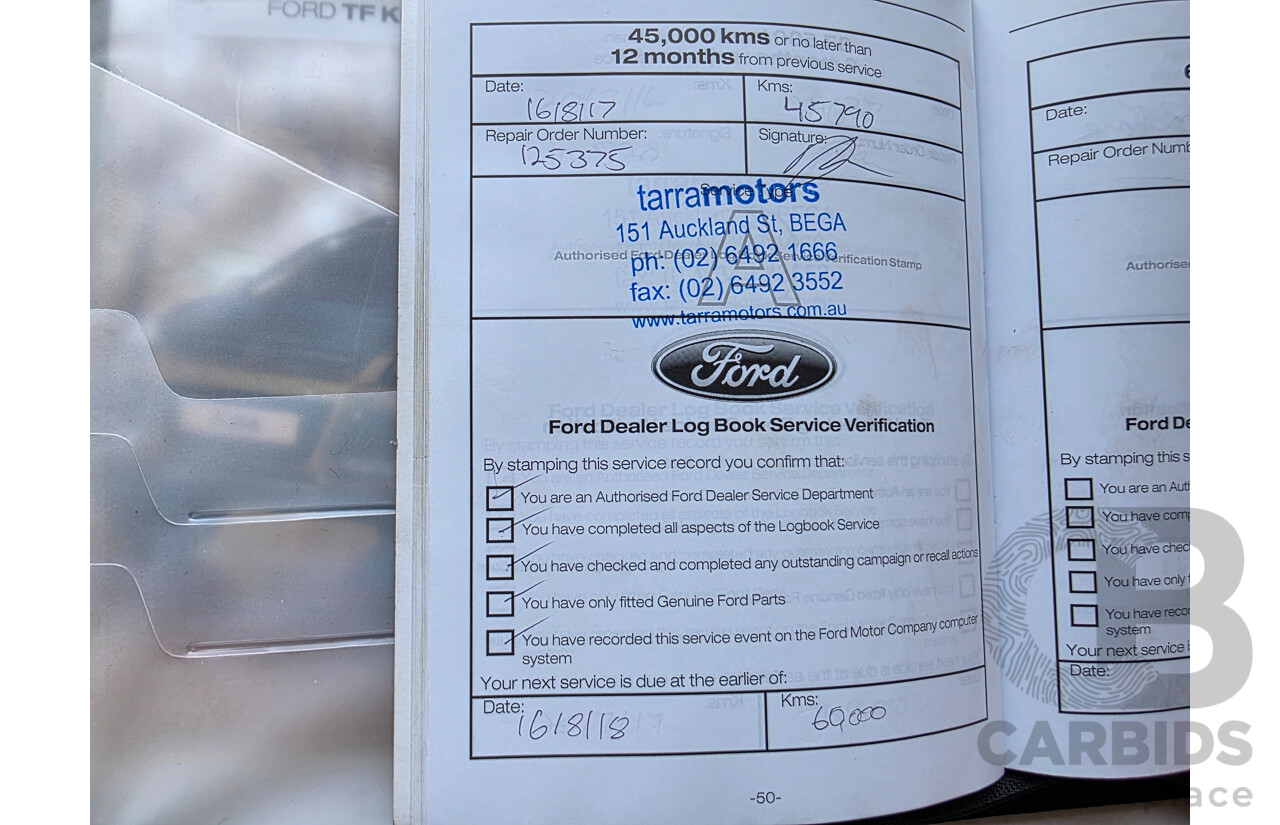 FORD TF K
45,000 kms or no later than
12 months from previous service
Date:
16/8/17
Kms:
45790
Repair Order Number:
125375
Signature:
Service Type
tarramotors
151 Auckland St, BEGA
A
Authorised Ford Dealer Verification Stamp
ph: (02) 6492 1666
fax: (02) 6492 3552
www.tarramotors.com.au
Ford
Ford Dealer Log Book Service Verification
By stamping this service record you confirm that:
You are an Authorised Ford Dealer Service Department
You have completed all aspects of the Logbook Service
You have checked and completed any outstanding campaign or recall actions
You have only fitted Genuine Ford Parts
You have recorded this service event on the Ford Motor Company computer
system
Your next service is due at the earlier of:
Date:
16/8/18
Kms:
60,000
-50-
6
Date:
Repair Order Numb
Authorise
Ford De
By stamping this s
You are an Auth
You have comp
You have chec
You have only f
You have recor
system
Your next service i
Date:
CB
CARBIDS
ace